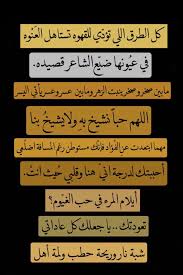 كل الطرق اللي تؤدي للقهوه تستاهل العنوه
في عيونها ضيّع الشاعر قصيده.
مابين صخر وصخر ينبت الزهر ومابين عسر وعسر يأتي اليسر
اللهم حباً نشيخ به ولا يشيخ بنا
مهما ابتعدت عن الفؤاد فإنك مستوطن رغم المسافة أضلعي
أحببتك لدرجة اني هنا وقلبي حيث انت.
أيلام المرء في حب الغيوم؟
تعودتك .. ياجعلك كل عاداتي
شبة نار وريحة حطب ولمة أهل